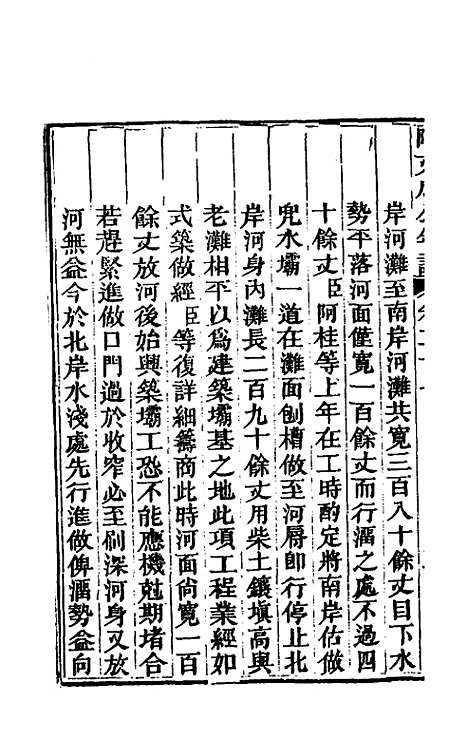 岸河灘至南岸河灘共寬三百八十餘丈目下水
勢平落河面僅寬一百餘丈而行溜之處不過四
十餘丈臣阿桂等上年在工時酌定將南岸估做
兜水壩一道在灘面刨槽做至河唇即行停止北
岸河身內灘長二百九十餘丈用柴土鑲填高與
老灘相平以為建築壩基之地此項工程業經如
式築做經臣等復詳細籌商此時河面尚寬一百
餘丈放河後始興築壩工恐不能應機尅期堵合
若趕緊進做口門過於收窄必至刷深河身又放
河無益今於北岸水淺處先行進做俾溜勢益向